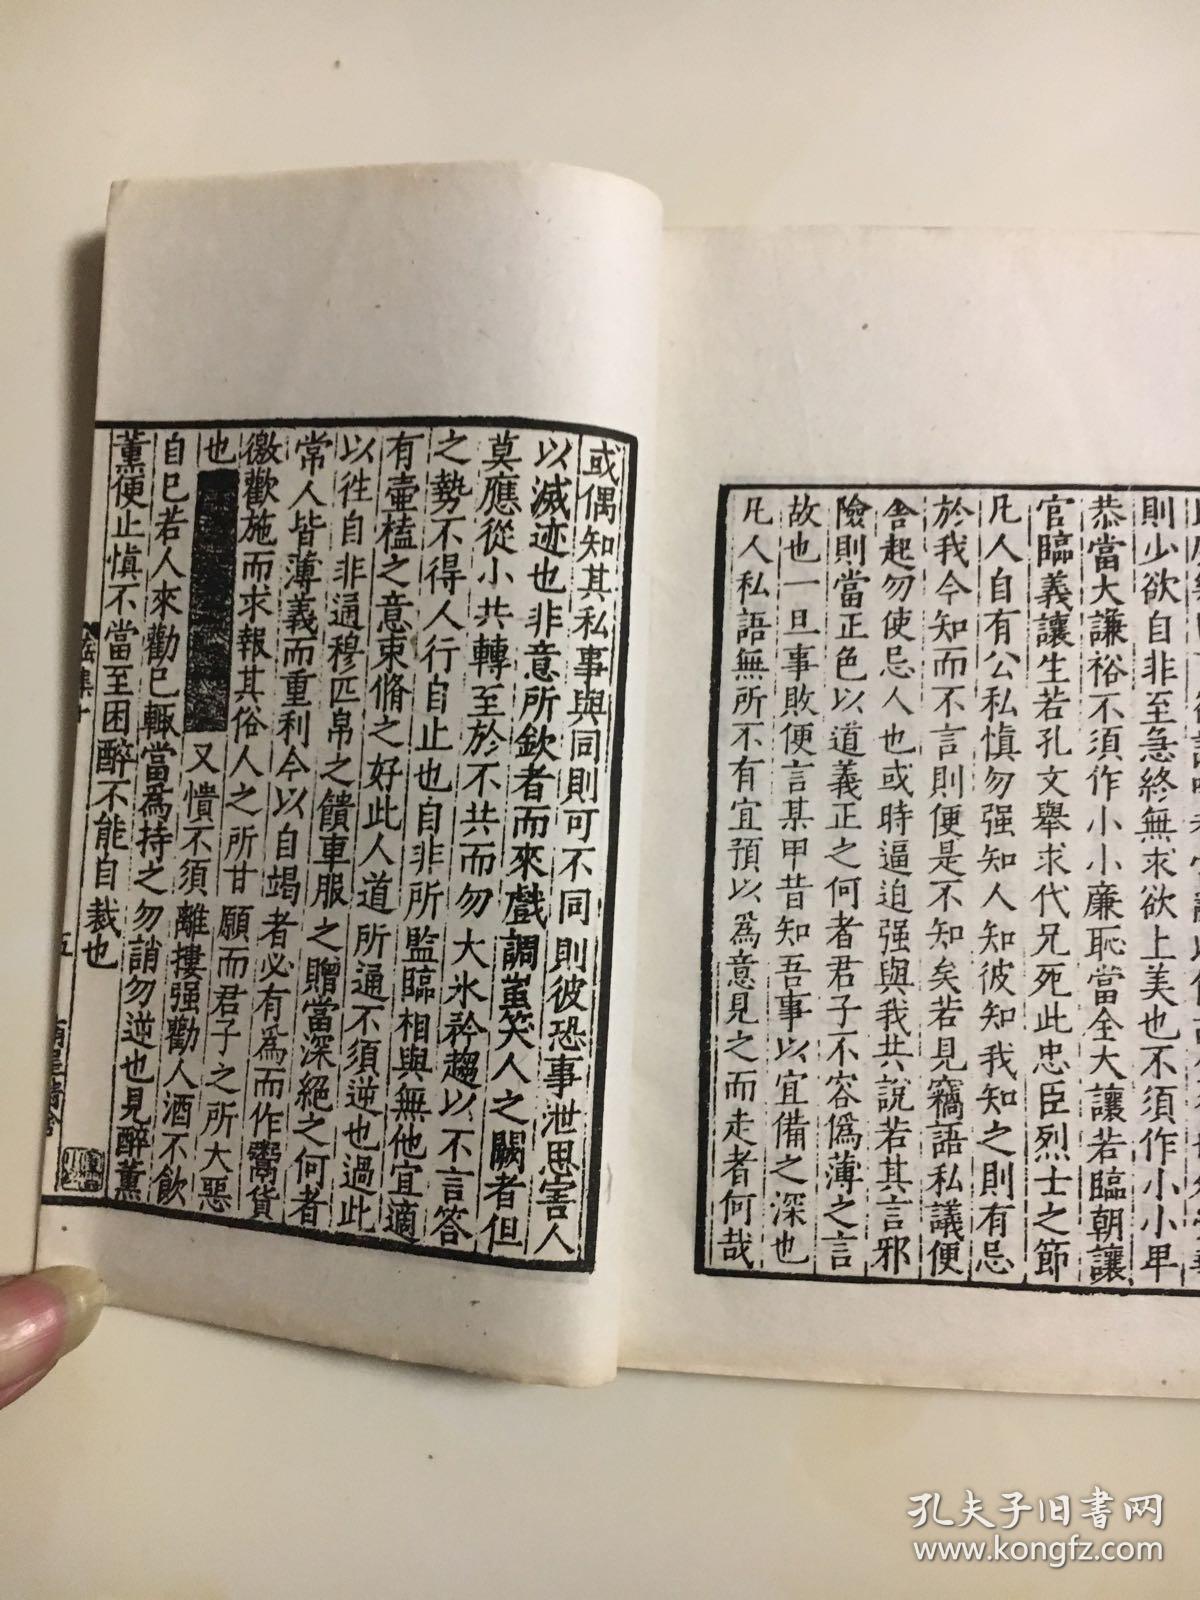 則少欲自非至急終無求欲上美也不須作小小卑
恭當大謙裕不須作小小廉恥當全大讓若臨朝讓
官臨義讓生若孔文舉求代兄死此忠臣烈士之節
凡人自有公私愼勿强知人知彼知我知之則有忌
於我今知而不言則便是不知矣若見竊語私議便
舍起勿使忌人也或時逼迫强與我共說若其言邪
險則當正色以道義正之何者君子不容僞薄之言
故也一旦事敗便言某甲昔知吾事以宜備之深也
凡人私語無所不有宜預以爲意見之而走者何哉
或偶知其私事與同則可不同則彼恐事泄思害人
以滅迹也非意所欽者而來戲調蚩笑人之闕者但
莫應從小共轉至於不共而勿大氷矜趨以不言答
之勢不得人行自止也自非所監臨相與無他宜適
有壷榼之意束脩之好此人道所通不須逆也過此
以徃自非通穆匹帛之饋車服之贈當深絕之何者
常人皆薄義而重利今以自竭者必有爲而作鬻貨
徼歡施而求報其俗人之所甘願而君子之所大惡
也 又憒不須離摟强勸人酒不飲
自已若人來勸己輒當爲持之勿誚勿逆也見醉薰
薰便止愼不當至困醉不能自裁也
集十
五
孔夫子旧书网
www.kongfz.com